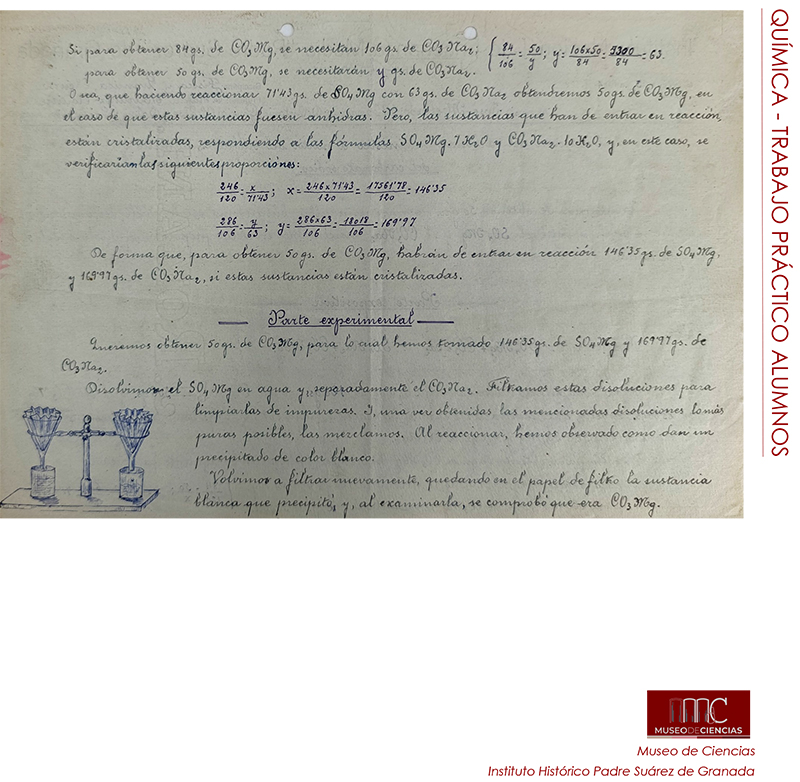 Si para obtener 84 gs. de CO₃Mg, se necesitan 106 gs. de CO₃Na₂; { 84/106 = 50/y ; y = 106x50/84 = 5300/84 = 63.
para obtener 50 gs. de CO₃Mg, se necesitarán y gs. de CO₃Na₂.
O sea, que haciendo reaccionar 71'43 gs. de SO₄Mg con 63 gs. de CO₃Na₂ obtendremos 50 gs. de CO₃Mg, en
el caso de que estas sustancias fuesen anhidras. Pero, las sustancias que han de entrar en reacción,
están cristalizadas, respondiendo a las fórmulas SO₄Mg.7H₂O y CO₃Na₂.10H₂O, y, en este caso, se
verificarían las siguientes proporciones:
246/120 = x/71'43 ; x = 246x71'43/120 = 17561'78/120 = 146'35
286/106 = y/63 ; y = 286x63/106 = 18018/106 = 169'97
De forma que, para obtener 50 gs. de CO₃Mg, habrán de entrar en reacción 146'35 gs. de SO₄Mg,
y 169'97 gs. de CO₃Na₂, si estas sustancias están cristalizadas.
— Parte experimental —
Queremos obtener 50 gs. de CO₃Mg, para lo cual hemos tomado 146'35 gs. de SO₄Mg y 169'97 gs. de
CO₃Na₂.
Disolvimos el SO₄Mg en agua y, separadamente el CO₃Na₂. Filtramos estas disoluciones para
limpiarlas de impurezas. Y, una vez obtenidas las mencionadas disoluciones lo más
puras posibles, las mezclamos. Al reaccionar, hemos observado como dan un
precipitado de color blanco.
Volvimos a filtrar nuevamente, quedando en el papel de filtro la sustancia
blanca que precipitó, y, al examinarla, se comprobó que era CO₃Mg.
QUÍMICA - TRABAJO PRÁCTICO ALUMNOS
MC
MUSEO DE CIENCIAS
Museo de Ciencias
Instituto Histórico Padre Suárez de Granada